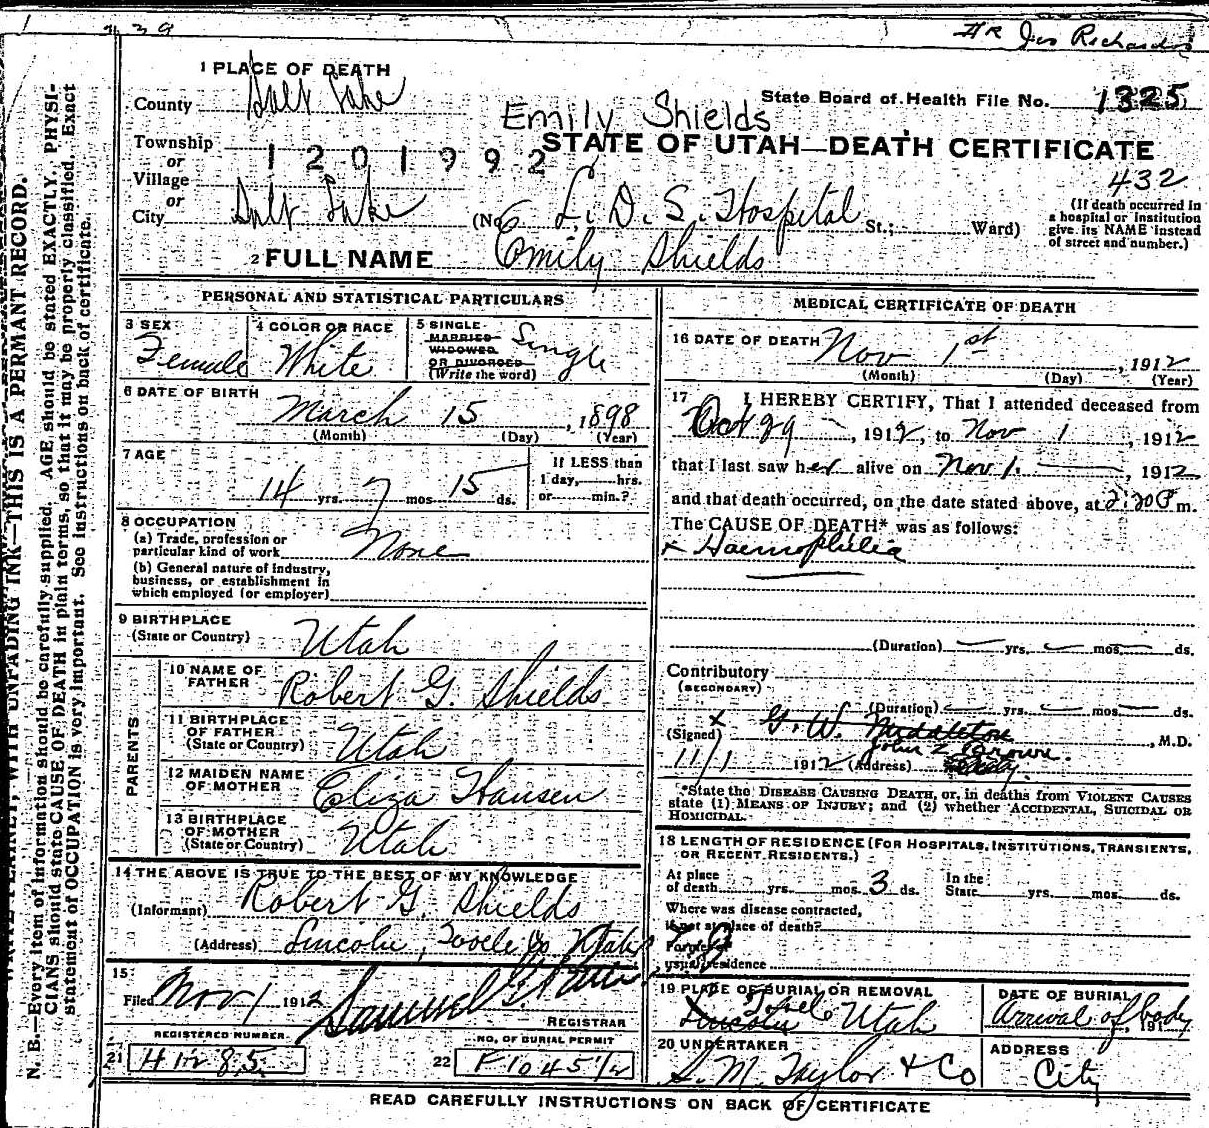 HR Jos Richards
1 PLACE OF DEATH
County Salt Lake
State Board of Health File No. 1325
Emily Shields
Township
or
Village
or
1201992
STATE OF UTAH—DEATH CERTIFICATE
432
City Salt Lake (No. L. D. S. Hospital St.; Ward)
(If death occurred in a hospital or institution give its NAME instead of street and number.)
2 FULL NAME Emily Shields
PERSONAL AND STATISTICAL PARTICULARS
3 SEX Female
4 COLOR OR RACE White
5 SINGLE MARRIED WIDOWED OR DIVORCED (Write the word) Single
6 DATE OF BIRTH March 15, 1898
(Month) (Day) (Year)
7 AGE 14 yrs. 7 mos. 15 ds.
If LESS than 1 day, hrs. or min.?
8 OCCUPATION
(a) Trade, profession or particular kind of work None
(b) General nature of industry, business, or establishment in which employed (or employer)
9 BIRTHPLACE (State or Country) Utah
PARENTS
10 NAME OF FATHER Robert G. Shields
11 BIRTHPLACE OF FATHER (State or Country) Utah
12 MAIDEN NAME OF MOTHER Eliza Hansen
13 BIRTHPLACE OF MOTHER (State or Country) Utah
14 THE ABOVE IS TRUE TO THE BEST OF MY KNOWLEDGE
(Informant) Robert G. Shields
(Address) Lincoln, Tooele Co Utah
15 Filed Nov 1 1912 Samuel G. REGISTRAR
REGISTERED NUMBER
21 41285
NO. OF BURIAL PERMIT
22 F10451/2
MEDICAL CERTIFICATE OF DEATH
16 DATE OF DEATH Nov 1st, 1912
(Month) (Day) (Year)
17 I HEREBY CERTIFY, That I attended deceased from
Oct 29, 1912, to Nov 1, 1912
that I last saw her alive on Nov 1. 1912
and that death occurred, on the date stated above, at 2:20 P m.
The CAUSE OF DEATH* was as follows:
x Haemophilia
(Duration) yrs. mos. ds.
Contributory (SECONDARY)
(Duration) yrs. mos. ds.
(Signed) x G. W. Middleton, M.D.
John Z Brown.
11/1 1912 (Address)
*State the DISEASE CAUSING DEATH, or, in deaths from VIOLENT CAUSES
state (1) MEANS OF INJURY; and (2) whether ACCIDENTAL, SUICIDAL OR
HOMICIDAL.
18 LENGTH OF RESIDENCE (FOR HOSPITALS, INSTITUTIONS, TRANSIENTS,
OR RECENT RESIDENTS.)
At place of death yrs. mos. 3 ds. In the State yrs. mos. ds.
Where was disease contracted,
if not at place of death?
Former or
usual residence
19 PLACE OF BURIAL OR REMOVAL
Tooele
Lincoln Utah
DATE OF BURIAL
Arrival of body, 191
20 UNDERTAKER
S. M. Taylor & Co
ADDRESS
City
READ CAREFULLY INSTRUCTIONS ON BACK OF CERTIFICATE
WRITE PLAINLY, WITH UNFADING INK—THIS IS A PERMANT RECORD.
N. B.—Every item of information should be carefully supplied. AGE should be stated EXACTLY. PHYSI-
CIANS should state CAUSE OF DEATH in plain terms, so that it may be properly classified. Exact
statement of OCCUPATION is very important. See instructions on back of certificate.